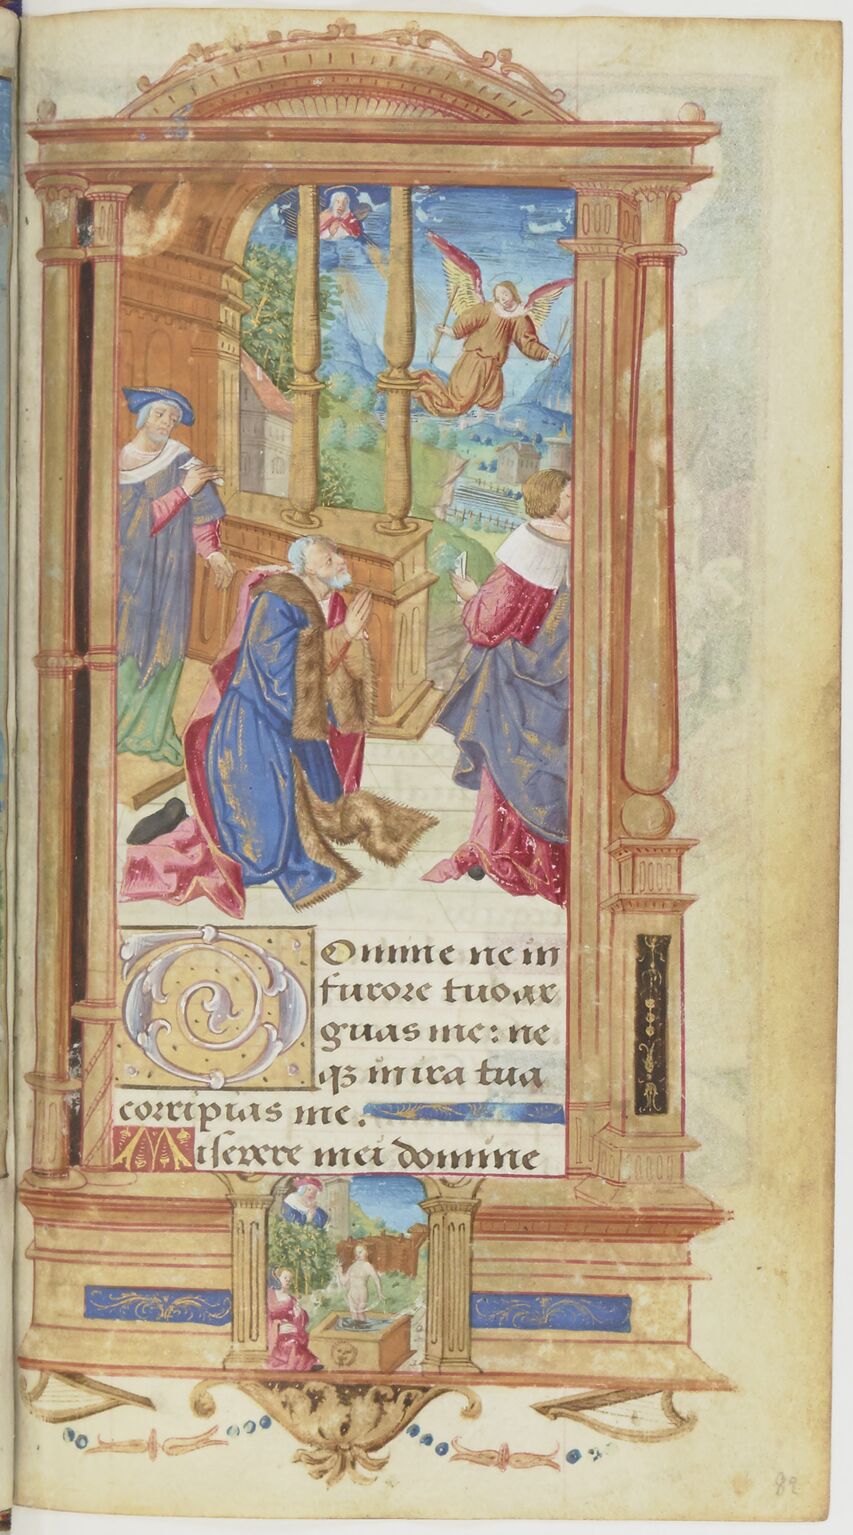 Domine ne in
furore tuo ar
guas me: ne
qꝫ in ira tua
corripias me.
Miserere mei domine
82